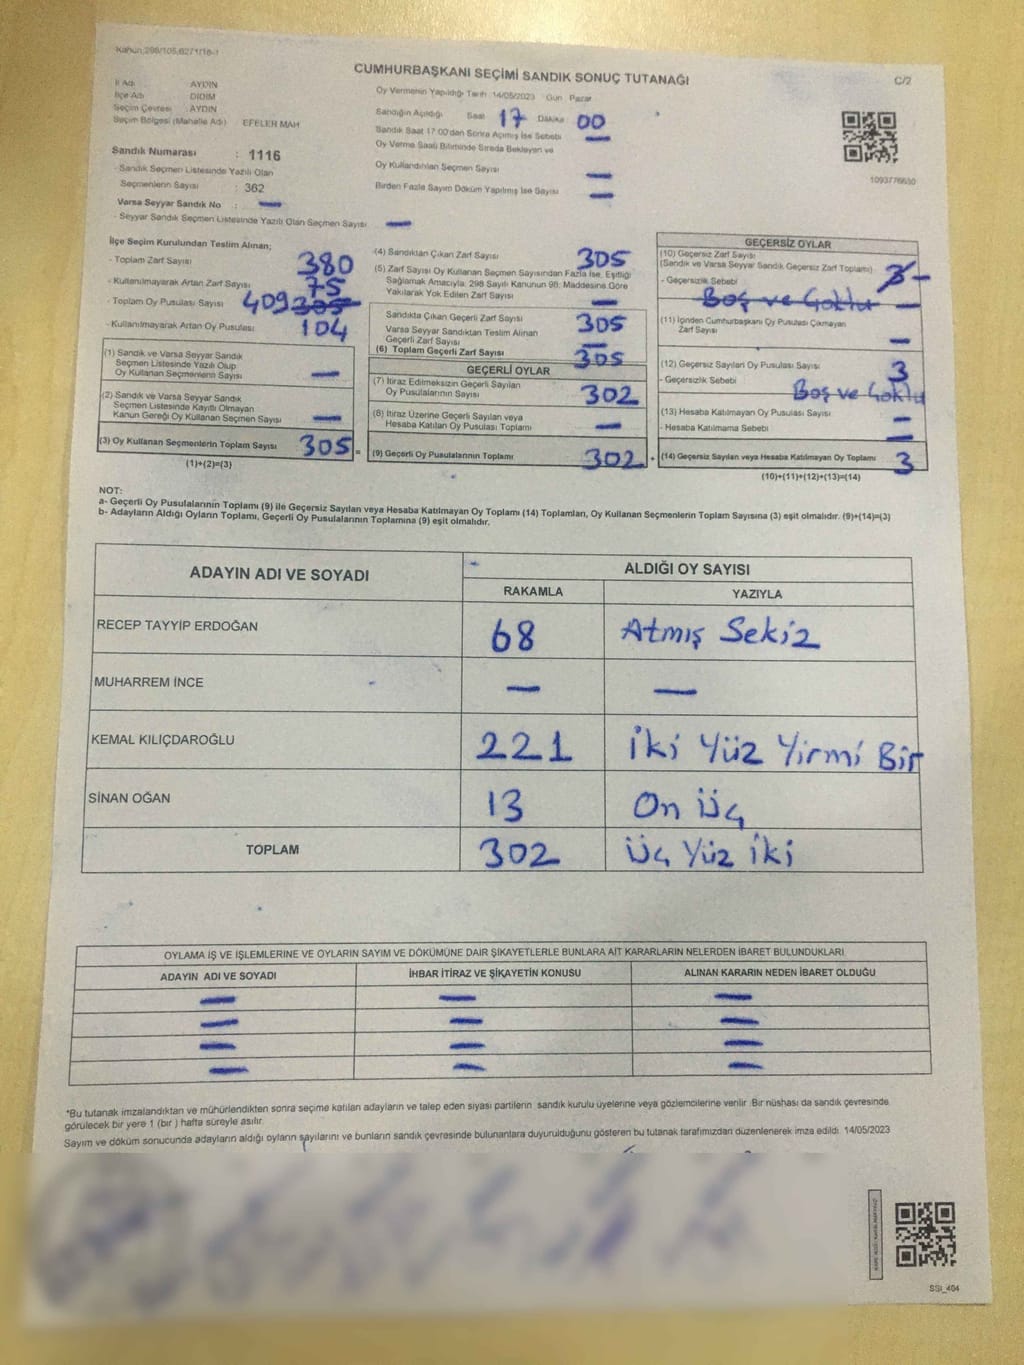 Kanun:298/105,6271/16-1
CUMHURBAŞKANI SEÇİMİ SANDIK SONUÇ TUTANAĞI
C/2
İl Adı AYDIN
İlçe Adı DİDİM
Seçim Çevresi : AYDIN
Seçim Bölgesi (Mahalle Adı) EFELER MAH
Sandık Numarası : 1116
- Sandık Seçmen Listesinde Yazılı Olan
Seçmenlerin Sayısı : 362
Varsa Seyyar Sandık No : —
- Seyyar Sandık Seçmen Listesinde Yazılı Olan Seçmen Sayısı —
Oy Vermenin Yapıldığı Tarih 14/05/2023 Gün Pazar
Sandığın Açıldığı Saat 17 Dakika 00
Sandık Saat 17:00'dan Sonra Açılmış İse Sebebi —
Oy Verme Saati Bitiminde Sırada Bekleyen ve
Oy Kullandırılan Seçmen Sayısı —
Birden Fazla Sayım Döküm Yapılmış İse Sayısı —
1093776630
İlçe Seçim Kurulundan Teslim Alınan;
- Toplam Zarf Sayısı 380
- Kullanılmayarak Artan Zarf Sayısı 75
- Toplam Oy Pusulası Sayısı 409 305
- Kullanılmayarak Artan Oy Pusulası 104
(1) Sandık ve Varsa Seyyar Sandık
Seçmen Listesinde Yazılı Olup
Oy Kullanan Seçmenlerin Sayısı —
(2) Sandık ve Varsa Seyyar Sandık
Seçmen Listesinde Kayıtlı Olmayan
Kanun Gereği Oy Kullanan Seçmen Sayısı —
(3) Oy Kullanan Seçmenlerin Toplam Sayısı 305 =
(1)+(2)=(3)
(4) Sandıktan Çıkan Zarf Sayısı 305
(5) Zarf Sayısı Oy Kullanan Seçmen Sayısından Fazla İse, Eşitliği
Sağlamak Amacıyla; 298 Sayılı Kanunun 98. Maddesine Göre
Yakılarak Yok Edilen Zarf Sayısı —
Sandıkta Çıkan Geçerli Zarf Sayısı 305
Varsa Seyyar Sandıktan Teslim Alınan
Geçerli Zarf Sayısı —
(6) Toplam Geçerli Zarf Sayısı 305
GEÇERLİ OYLAR
(7) İtiraz Edilmeksizin Geçerli Sayılan
Oy Pusulalarının Sayısı 302
(8) İtiraz Üzerine Geçerli Sayılan veya
Hesaba Katılan Oy Pusulası Toplamı —
(9) Geçerli Oy Pusulalarının Toplamı 302 +
GEÇERSİZ OYLAR
(10) Geçersiz Zarf Sayısı
(Sandık ve Varsa Seyyar Sandık Geçersiz Zarf Toplamı) 3 —
- Geçersizlik Sebebi
Boş ve Çoklu —
(11) İçinden Cumhurbaşkanı Oy Pusulası Çıkmayan
Zarf Sayısı —
(12) Geçersiz Sayılan Oy Pusulası Sayısı 3
- Geçersizlik Sebebi Boş ve Çoklu
(13) Hesaba Katılmayan Oy Pusulası Sayısı —
- Hesaba Katılmama Sebebi —
(14) Geçersiz Sayılan veya Hesaba Katılmayan Oy Toplamı 3
(10)+(11)+(12)+(13)=(14)
NOT:
a- Geçerli Oy Pusulalarının Toplamı (9) ile Geçersiz Sayılan veya Hesaba Katılmayan Oy Toplamı (14) Toplamları, Oy Kullanan Seçmenlerin Toplam Sayısına (3) eşit olmalıdır. (9)+(14)=(3)
b- Adayların Aldığı Oyların Toplamı, Geçerli Oy Pusulalarının Toplamına (9) eşit olmalıdır.
ADAYIN ADI VE SOYADI ALDIĞI OY SAYISI
RAKAMLA YAZIYLA
RECEP TAYYİP ERDOĞAN 68 Atmış Sekiz
MUHARREM İNCE — —
KEMAL KILIÇDAROĞLU 221 İki Yüz Yirmi Bir
SİNAN OĞAN 13 On Üç
TOPLAM 302 Üç Yüz İki
OYLAMA İŞ VE İŞLEMLERİNE VE OYLARIN SAYIM VE DÖKÜMÜNE DAİR ŞİKAYETLERLE BUNLARA AİT KARARLARIN NELERDEN İBARET BULUNDUKLARI
ADAYIN ADI VE SOYADI İHBAR İTİRAZ VE ŞİKAYETİN KONUSU ALINAN KARARIN NEDEN İBARET OLDUĞU
— — —
— — —
— — —
— — —
*Bu tutanak imzalandıktan ve mühürlendikten sonra seçime katılan adayların ve talep eden siyasi partilerin sandık kurulu üyelerine veya gözlemcilerine verilir. Bir nüshası da sandık çevresinde
görülecek bir yere 1 (bir) hafta süreyle asılır.
Sayım ve döküm sonucunda adayların aldığı oyların sayılarını ve bunların sandık çevresinde bulunanlara duyurulduğunu gösteren bu tutanak tarafımızdan düzenlenerek imza edildi. 14/05/2023
SSI_404